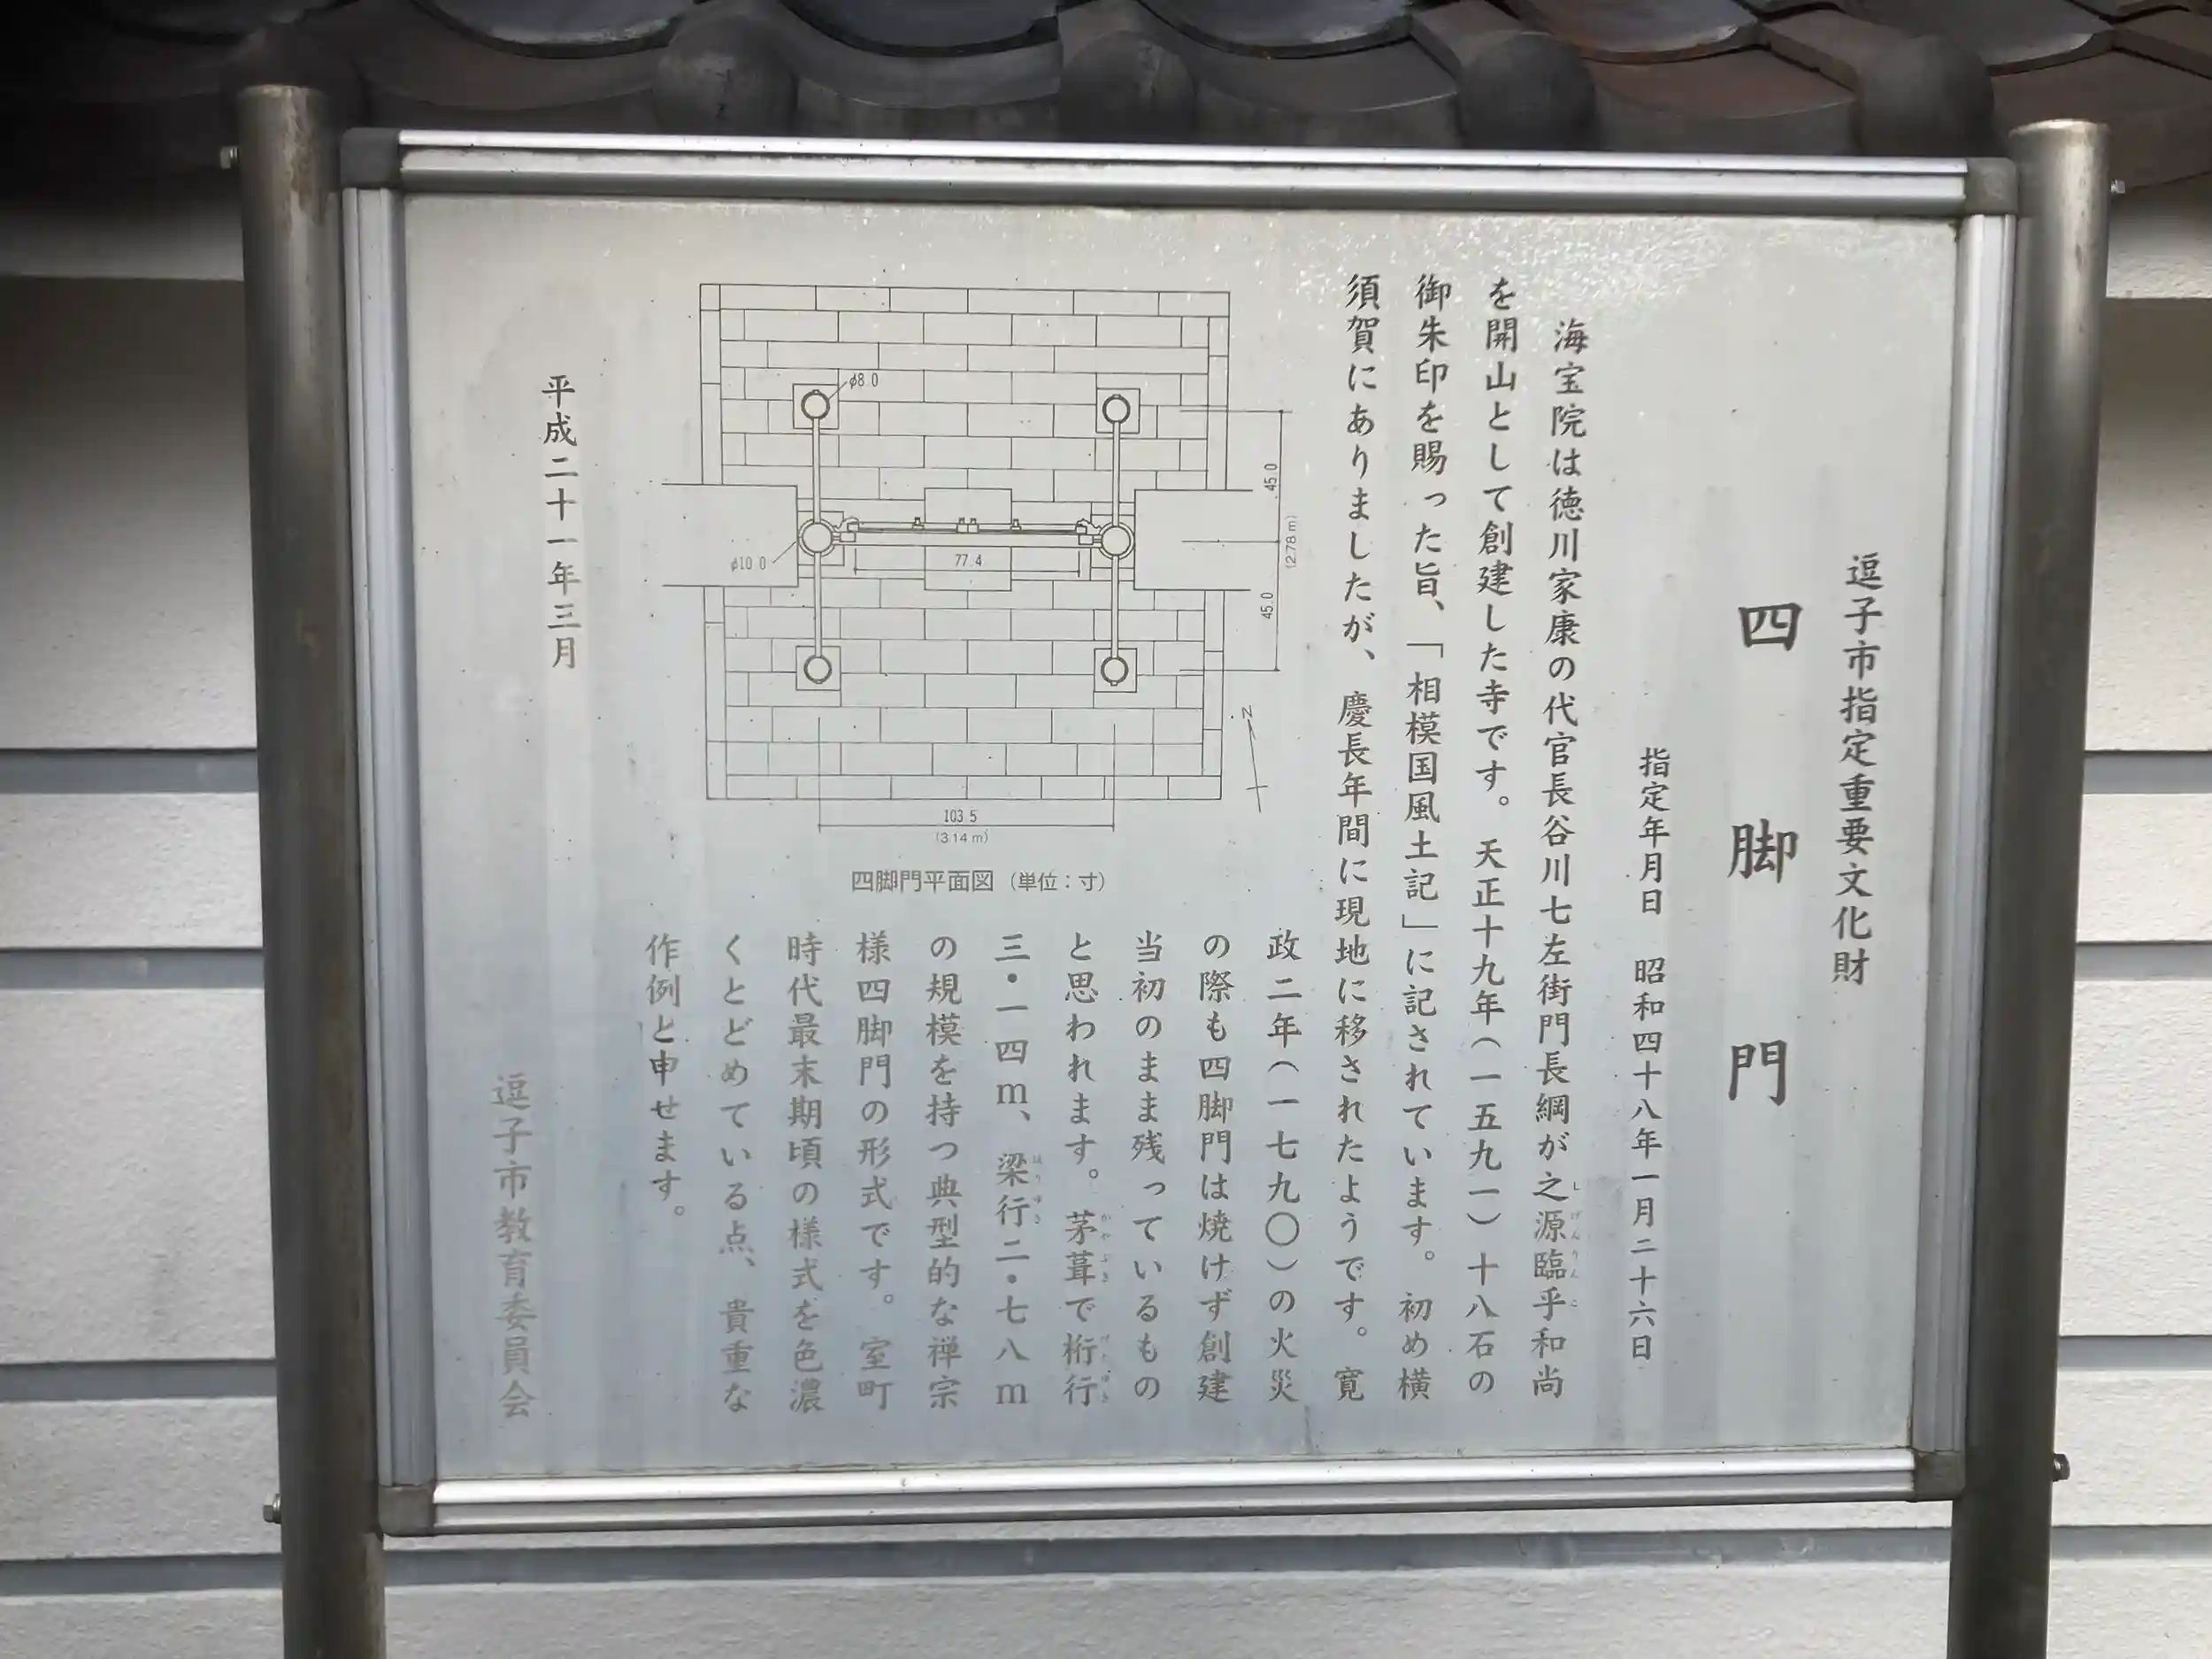 逗子市指定重要文化財
四脚門
指定年月日 昭和四十八年一月二十六日
海宝院は徳川家康の代官長谷川七左街門長綱が之源臨乎和尚
し げんりん こ
を開山として創建した寺です。天正十九年(一五九一)十八石の
御朱印を賜った旨、「相模国風土記」に記されています。初め横
須賀にありましたが、慶長年間に現地に移されたようです。寛
政二年(一七九〇)の火災
の際も四脚門は焼けず創建
当初のまま残っているもの
と思われます。茅葺で桁行
かやぶき けたゆき
三・一四m、梁行二・七八m
はりゆき
の規模を持つ典型的な禅宗
様四脚門の形式です。室町
時代最末期頃の様式を色濃
くとどめている点、貴重な
作例と申せます。
φ8.0
φ10.0
77.4
45.0
(2.78m)
45.0
N
103.5
(3.14m)
四脚門平面図(単位:寸)
平成二十一年三月
逗子市教育委員会